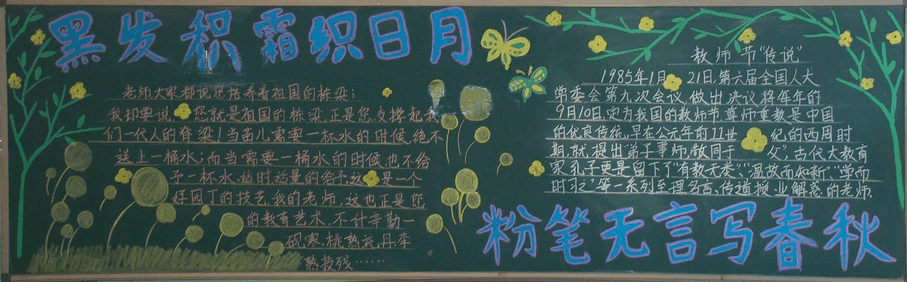 黑发积霜织日月
老师大家都说您培养着祖国的栋梁；
我却要说，您就是祖国的栋梁。正是您，支撑起我
们一代人的脊梁！当苗儿需要一杯水的时候，绝不
送上一桶水；而当需要一桶水的时候，也不给
予一杯水。适时适量的给予，这是一个
好园丁的技艺。我的老师，这也正是您
的教育艺术。不计辛勤一
砚寒，桃熟流丹李
熟枝残……
教师节“传说”
1985年1月21日，第六届全国人大
常委会第九次会议，做出决议将每年的
9月10日，定为我国的教师节。尊师重教是中国
的优良传统，早在公元年前11世纪的西周时
期，就提出“弟子事师，敬同于父”。古代大教育
家孔子更是留下了“有教无类”、“温故而知新”、“学而
时习之”等一系列至理名言。传道授业解惑的老师
粉笔无言写春秋